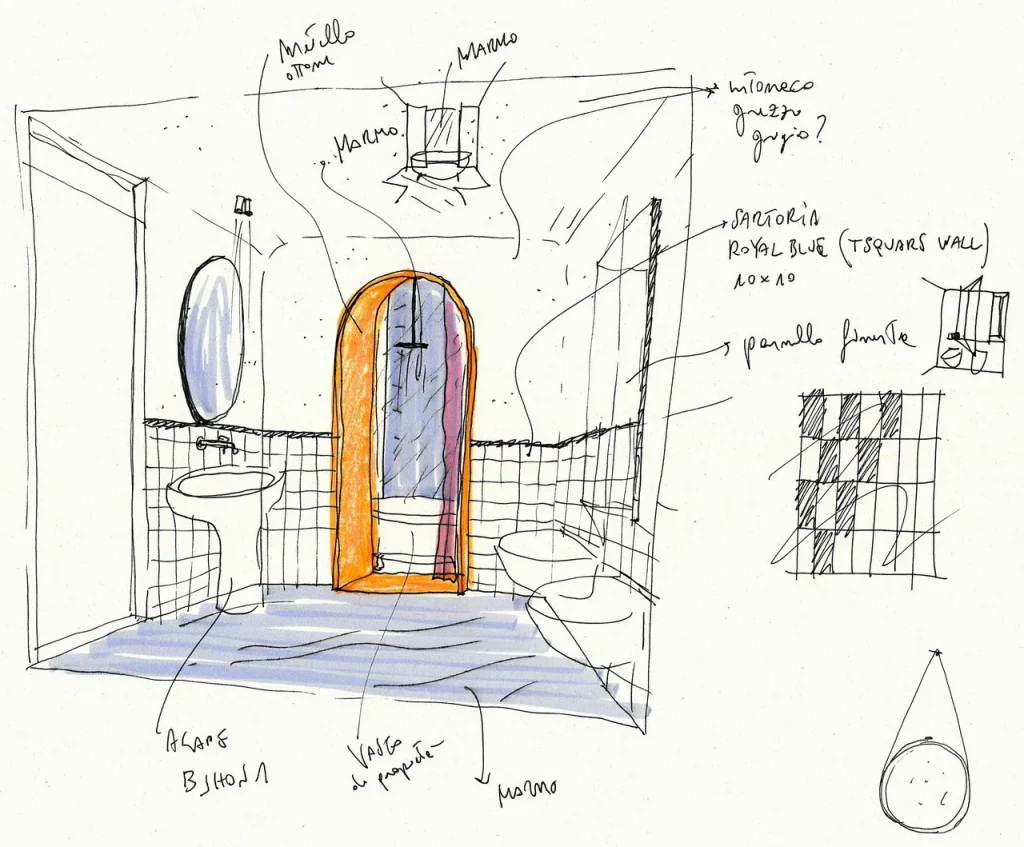 ottone
MARMO
MARMO
intonaco
grezzo
grigio?
SARTORIA
ROYAL BLUE (TSQUARE WALL)
10x10
pannello finestra
AGAPE
BJHON 1
di proprietà
MARMO